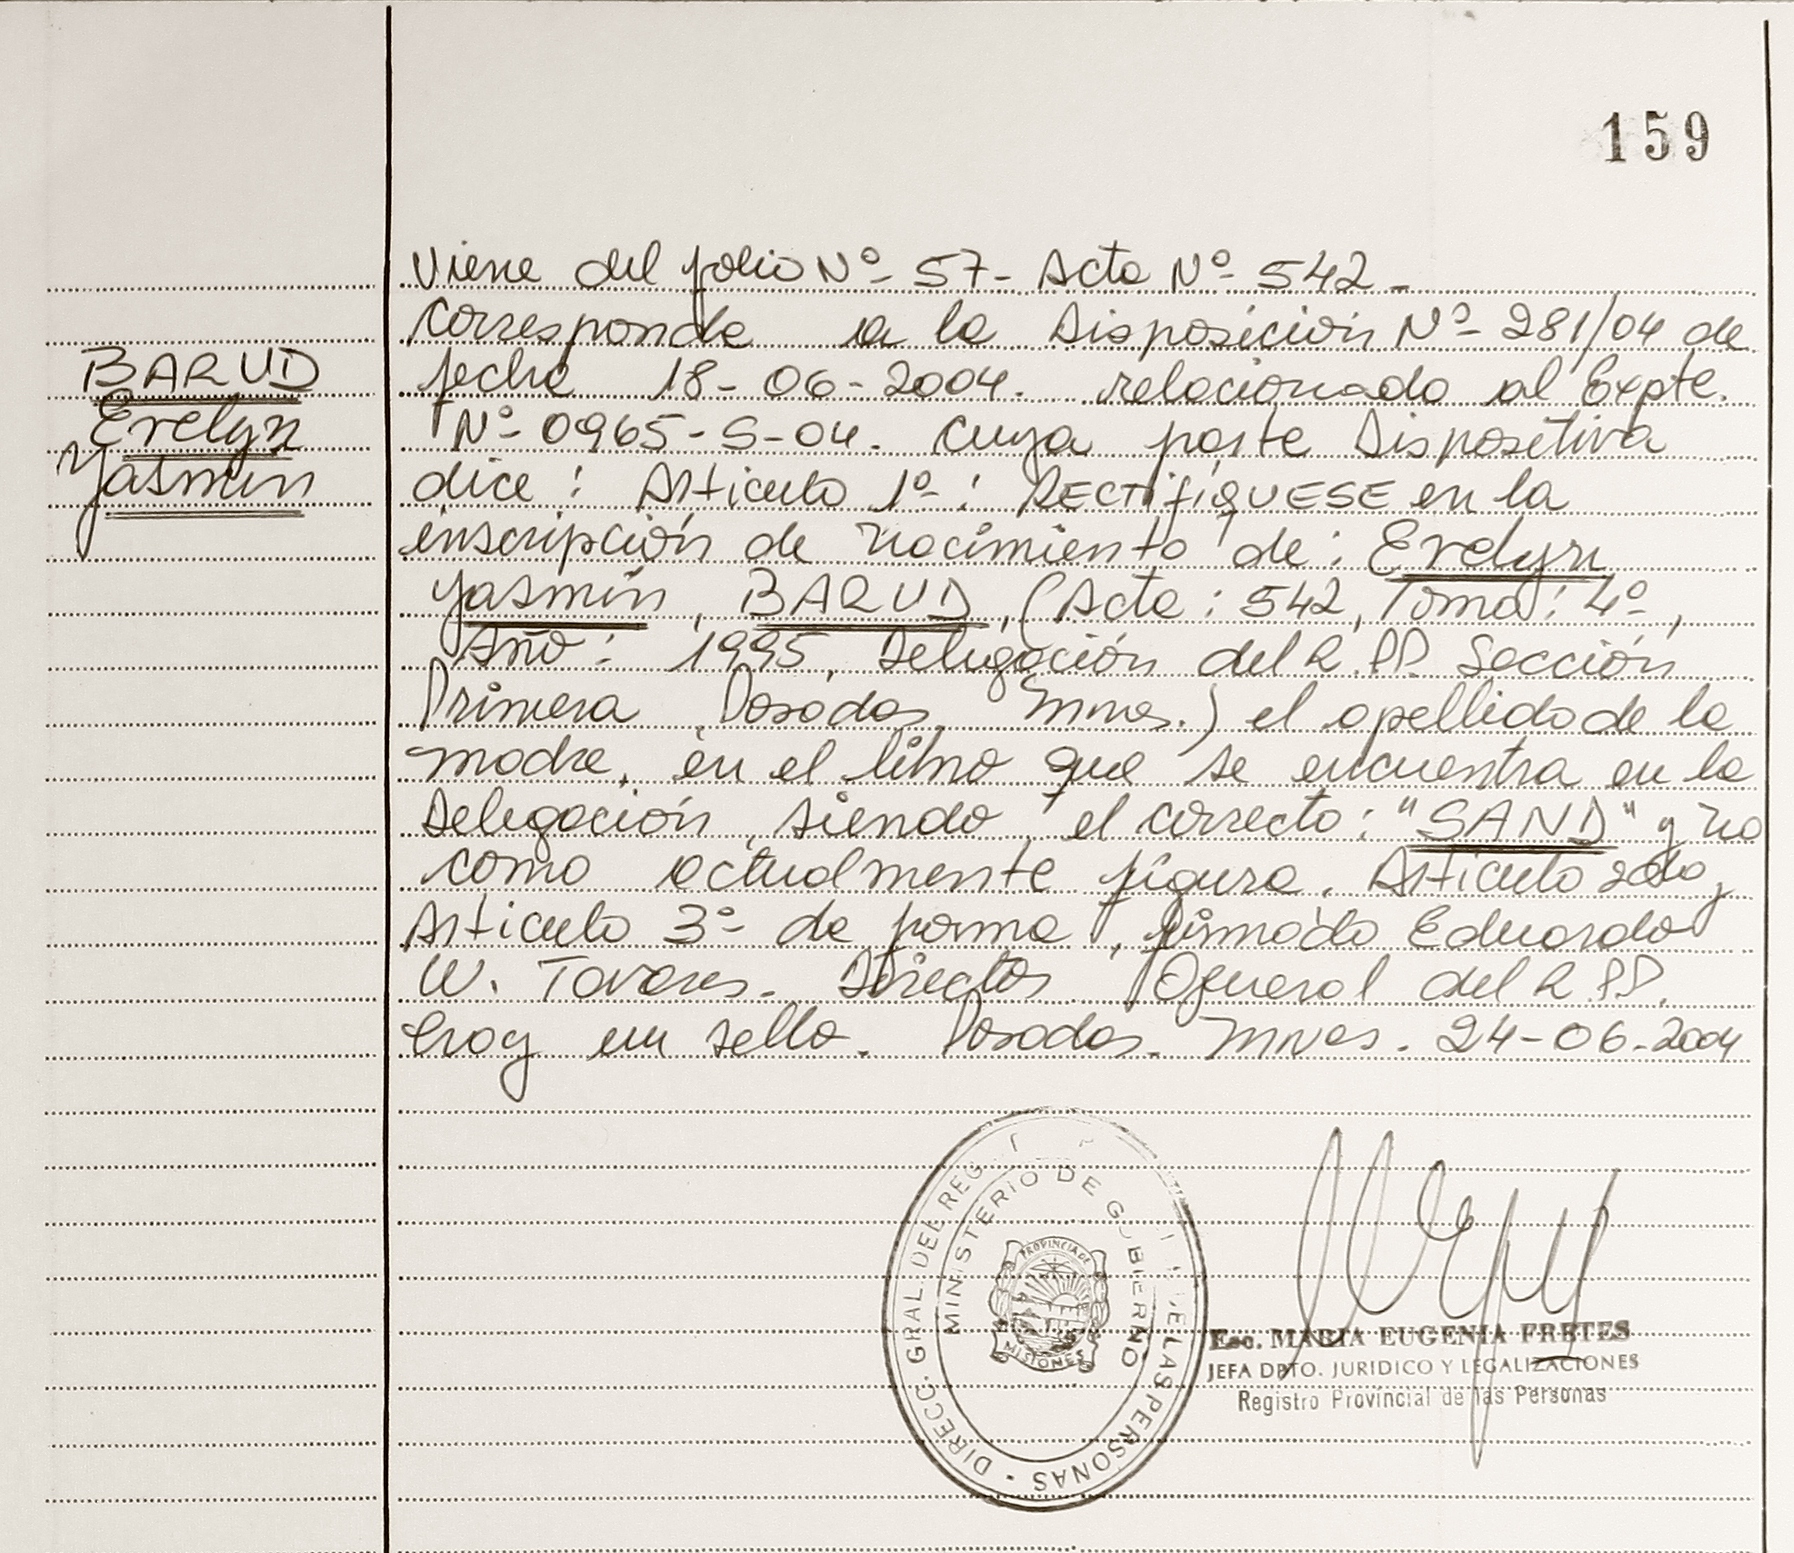 159
Viene del folio Nº- 57- Acta Nº- 542.-
Corresponde a la Disposición Nº- 281/04 de
fecha 18-06-2004. relacionado al Expte.
Nº- 0965-S-04. cuya parte Dispositiva
dice: Artículo 1º-: RECTIFÍQUESE en la
inscripción de nacimiento de: Evelyn
Yasmín, BARUD, (Acta: 542, Tomo: 4º,
Año: 1995, Delegación del R.PP. Sección
Primera, Posadas, Mnes.) el apellido de la
madre, en el libro que se encuentra en la
Delegación, siendo el correcto: "SAND" y no
como actualmente figura. Artículo 2do y
Artículo 3º- de forma, firmado Eduardo
W. Tavares. Director General del R.PP.
Hay un sello. Posadas. Mnes. 24-06-2004
BARUD
Evelyn
Yasmín
DIRECC. GRAL. DEL REG. DE LAS PERSONAS
MINISTERIO DE GOBIERNO
PROVINCIA DE
MISIONES
Esc. MARIA EUGENIA FRETES
JEFA DPTO. JURIDICO Y LEGALIZACIONES
Registro Provincial de las Personas